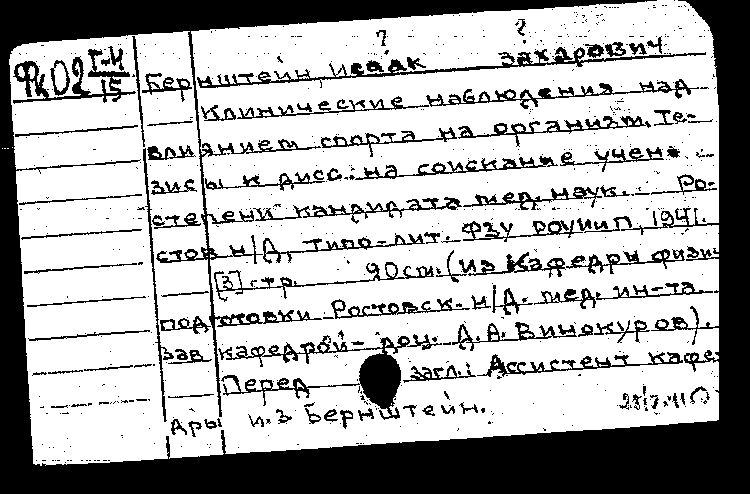 ? ?
Фк02 Г-4/15 Бернштейн, Исаак Захарович
Клинические наблюдения над
влиянием спорта на организм. Те-
зисы к дисс. на соискание учен.
степени кандидата мед. наук. Ро-
стов н/Д, типо-лит. ФЗУ РОУИиП, 1941.
[3] стр. 20 см. (Из Кафедры физич.
подготовки Ростовск. н/Д. мед. ин-та.
Зав кафедрой - доц. Д. А. Винокуров).
Перед загл.: Ассистент кафе-
дры И.З Бернштейн.